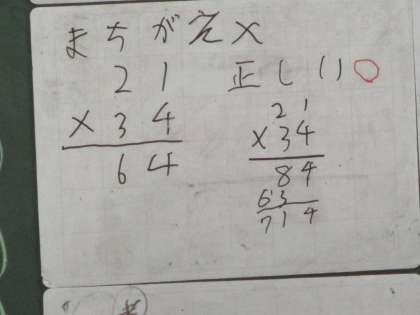 まちがえ×
21
×34
64
正しい○
21
×34
84
63
714